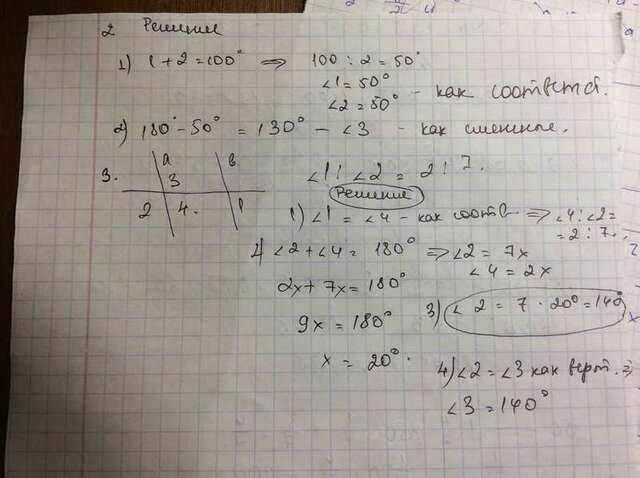 2 Решение
1) 1 + 2 = 100° ⇒ 100 : 2 = 50°
∠1 = 50°
∠2 = 50° - как соответст.
2) 180° - 50° = 130° - ∠3 - как смежные.
3. a b
3
2 4. 1
∠1 : ∠2 = 2 : 7.
Решение
1) ∠1 = ∠4 - как соотв - ⇒ ∠4 : ∠2 =
= 2 : 7.
2) ∠2 + ∠4 = 180° ⇒ ∠2 = 7x
∠4 = 2x
2x + 7x = 180°
9x = 180°
x = 20°.
3) ∠2 = 7 · 20° = 140°
4) ∠2 = ∠3 как верт. ⇒
∠3 = 140°